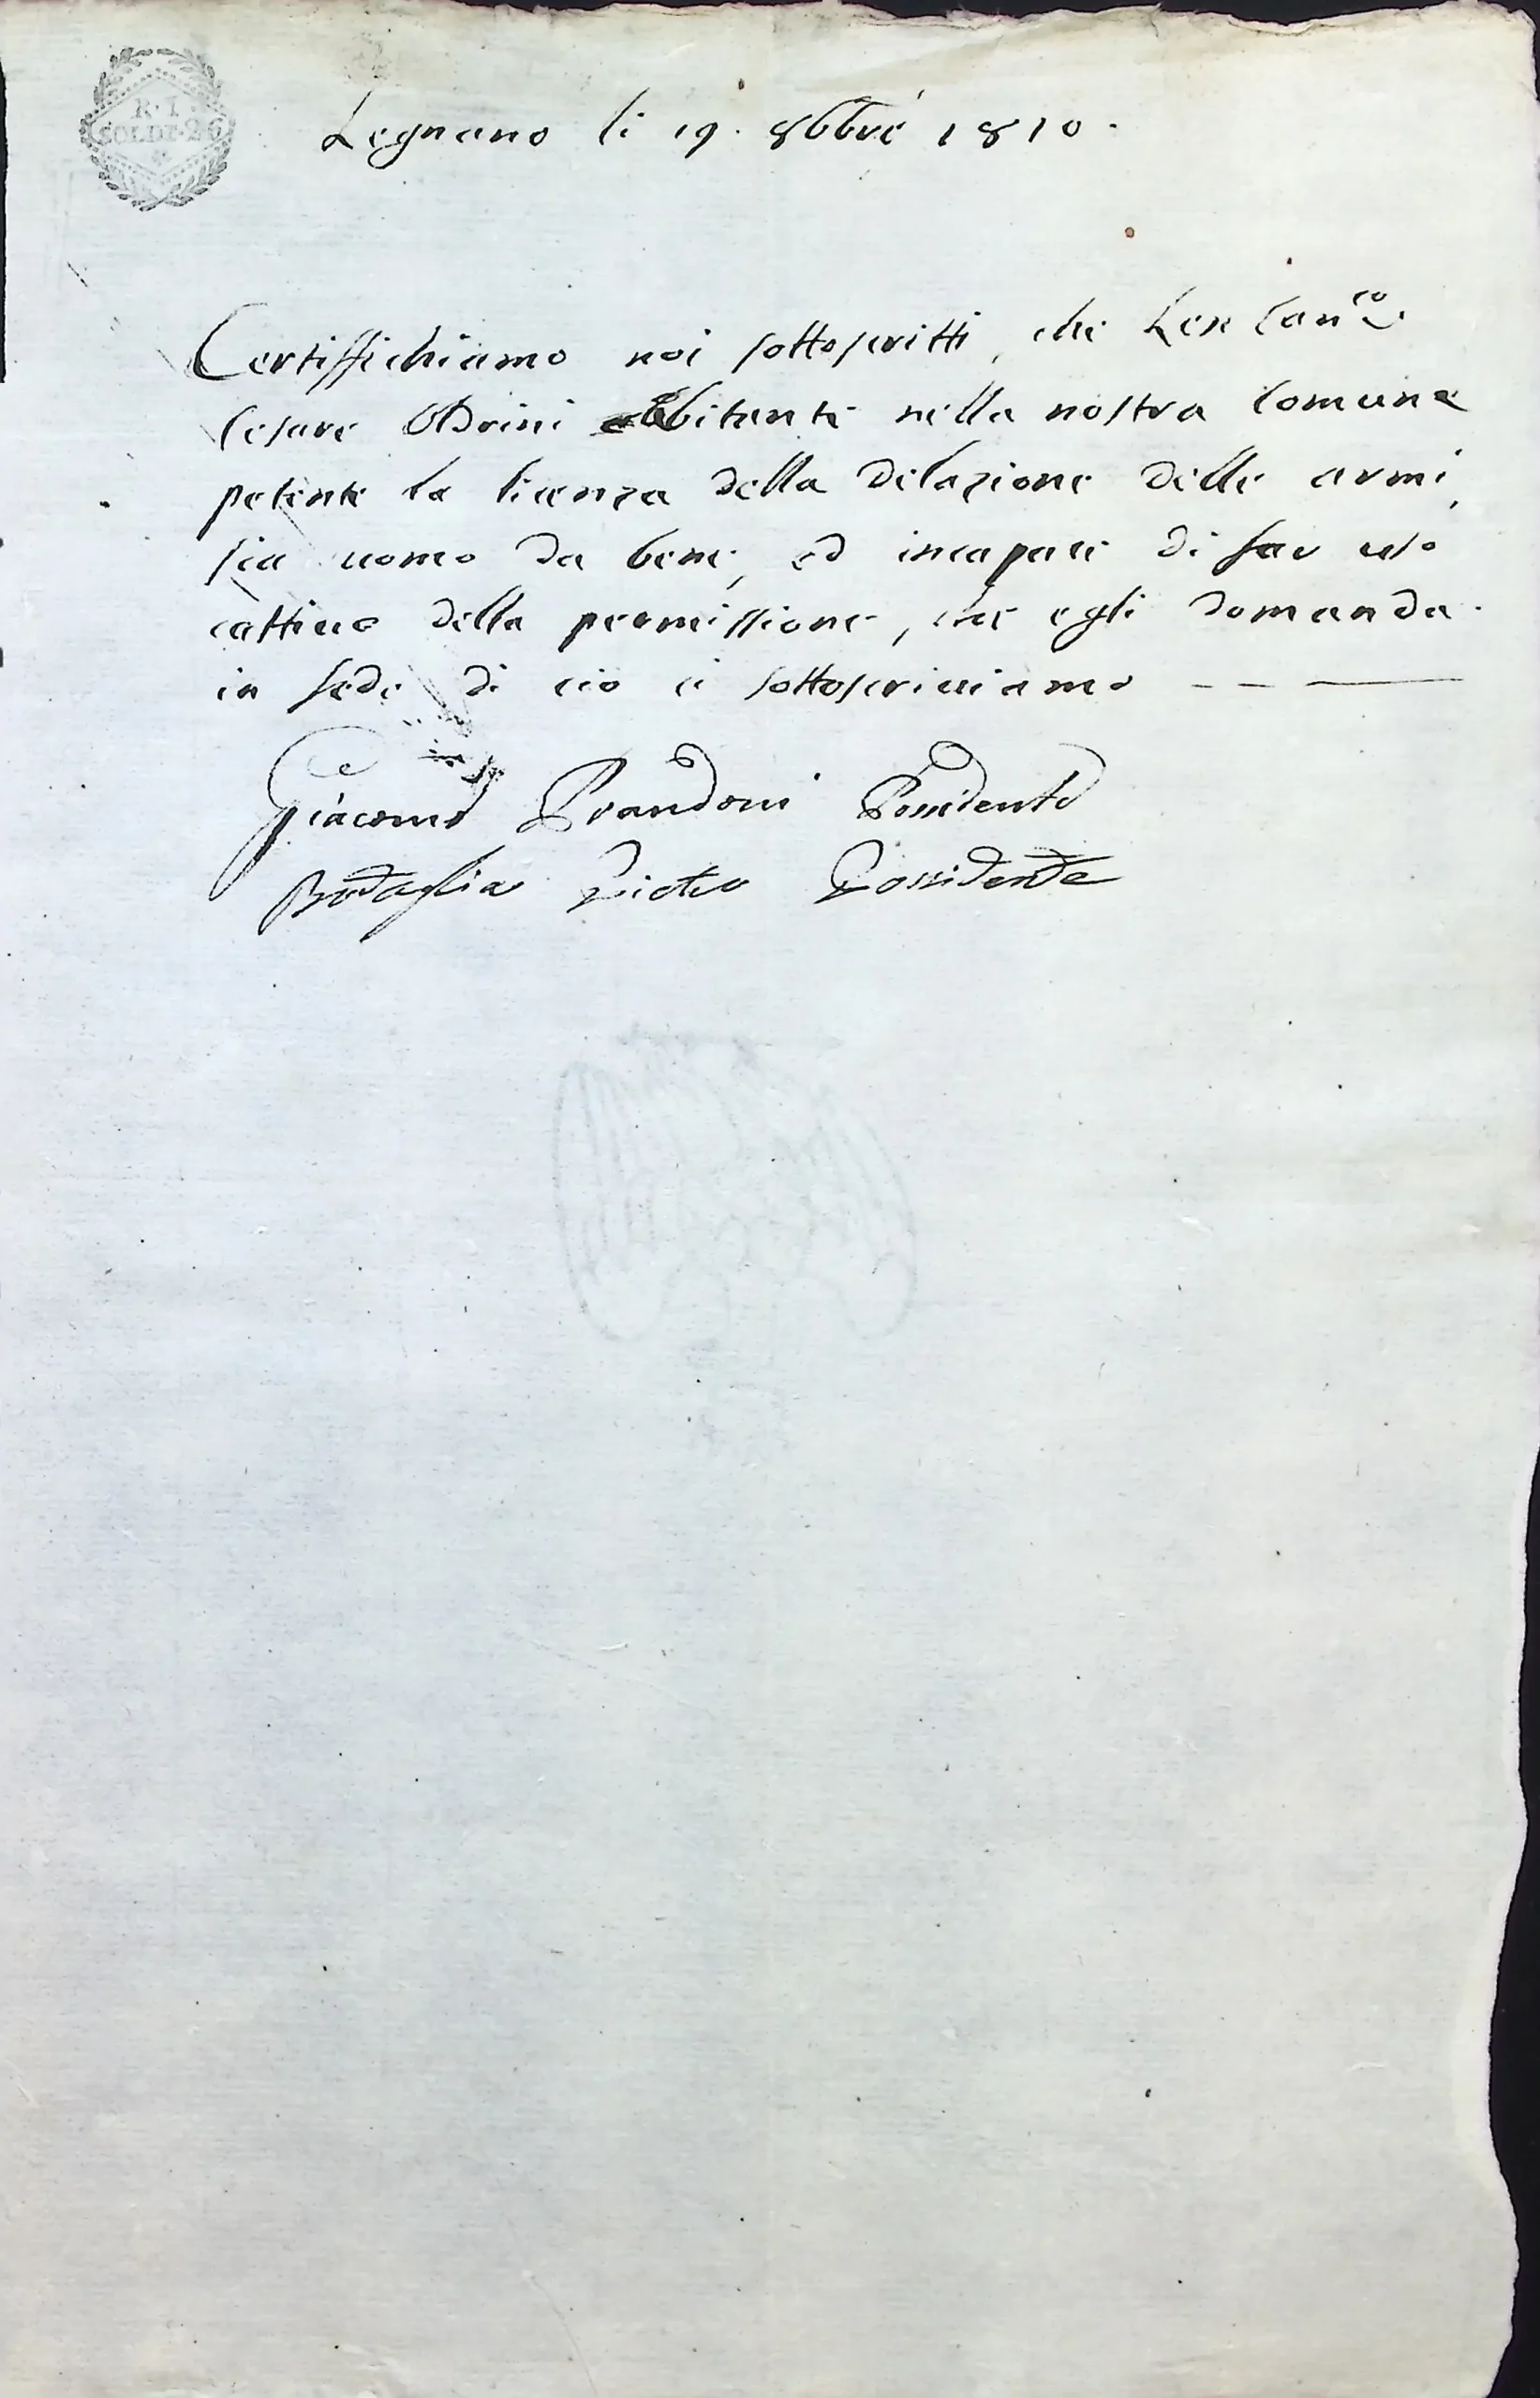 R. I.
SOLDI 20
Legnano li 19. 8bbre 1810.
Certiffichiamo noi sottoscritti, che L'ex Can.co
Cesare Odrini abbitante nella nostra Comune
petente la licenza della delazione delle armi,
sia uomo da bene, ed incapace di far uso
cattivo della permissione, che egli domanda.
in fede di cio ci sottoscriviamo
Giacomo Prandoni Possidente
Bottaglia Pietro Possidente